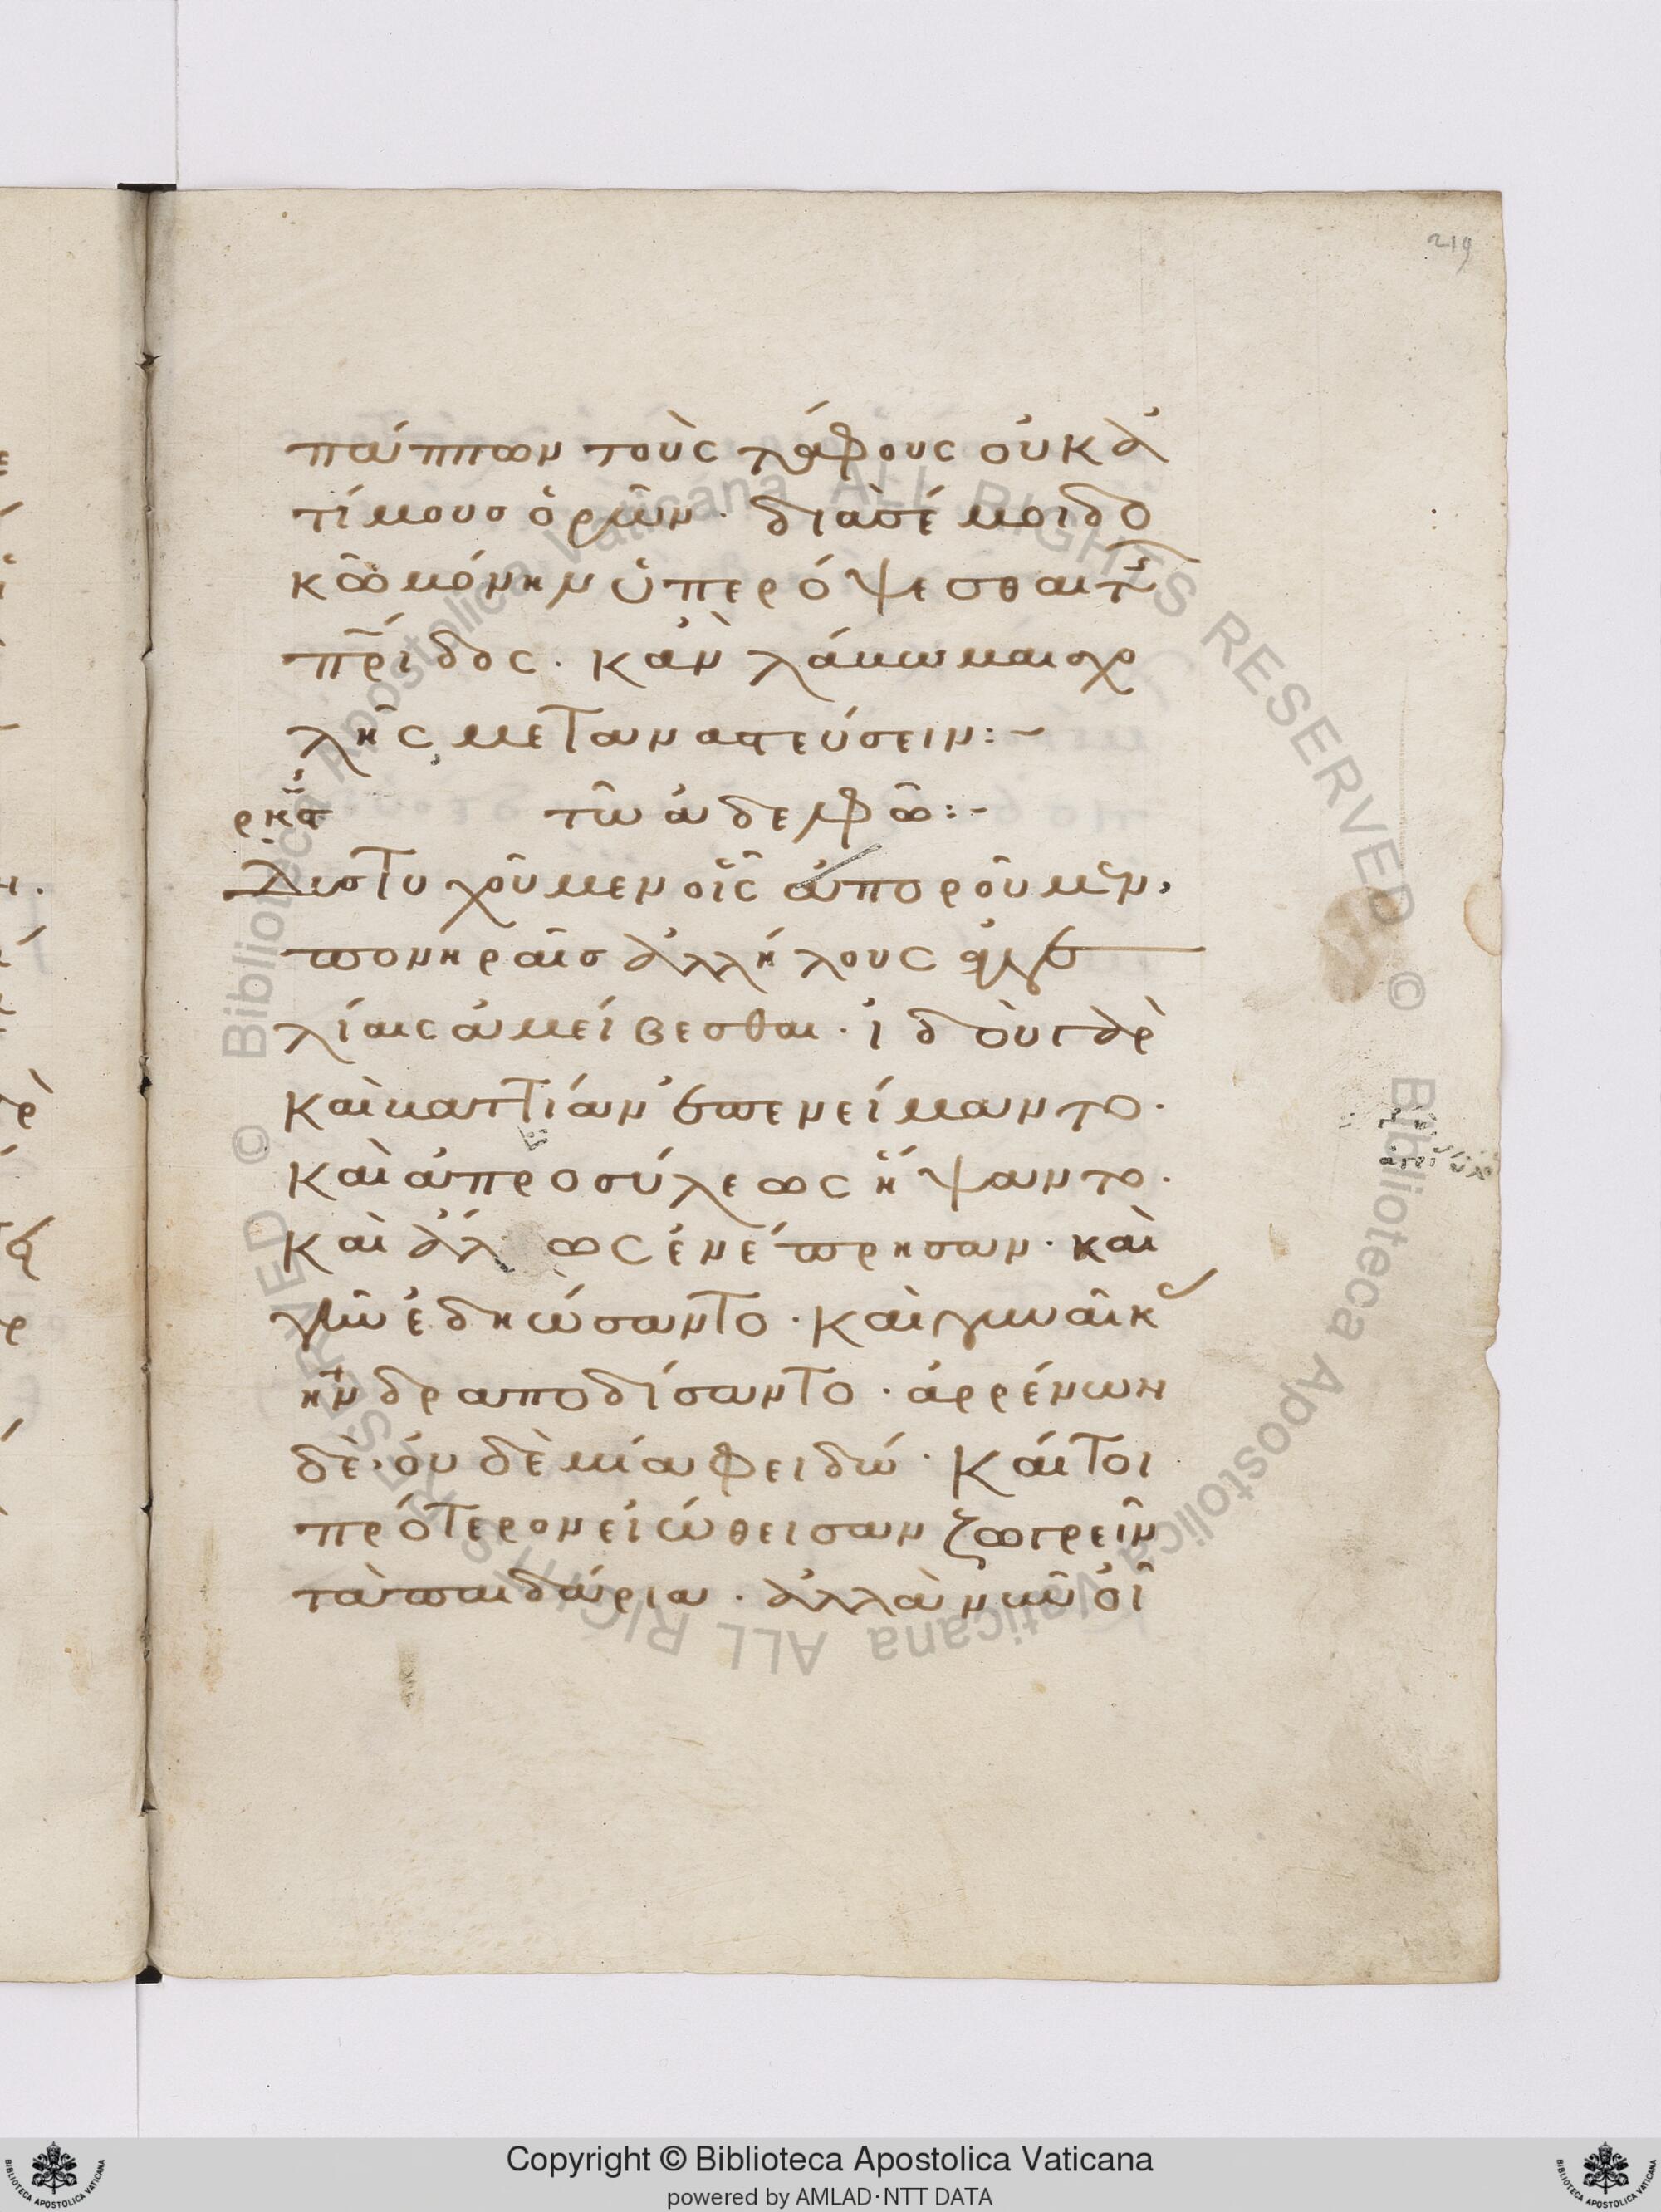 219
πάππων τοὺς τάφους οὐκ ἀ
τίμους ὁρῶν· διὰ σέ μοι δο
κῶ μόνην ὑπερόψεσθαι τῆς
πρίδος· κἂν λάβωμαι σχο
λῆς μεταναστεύσειν:-
ρκδ τῶ ἀδελφῶ:-
Δυστυχοῦμεν οἷς ἀποροῦμεν,
πονηραῖς ἀλλήλους ἀγγε
λίαις ἀμείβεσθαι· ἰδοὺ γὰρ
καὶ καπτίαν ἐπενείμαντο·
καὶ ἀπροσύλεως ἥψαντο·
καὶ ἄλ ως ἐνέπρησαν· καὶ
γῆν ἐδηώσαντο· καὶ γυναῖκας
ἠνδραποδίσαντο· ἀρρένων
δὲ· οὐδὲ μία φειδώ· καίτοι
πρότερον εἰώθεισαν ζωγρεῖν
τὰ παιδάρια· ἀλλὰ νῦν οἶ
Copyright © Biblioteca Apostolica Vaticana
powered by AMLAD·NTT DATA
© Biblioteca Apostolica Vaticana ALL RIGHTS RESERVED © Biblioteca Apostolica Vaticana ALL RIGHTS RESERVED
BIBLIOTECA APOSTOLICA VATICANA
BIBLIOTECA APOSTOLICA VATICANA